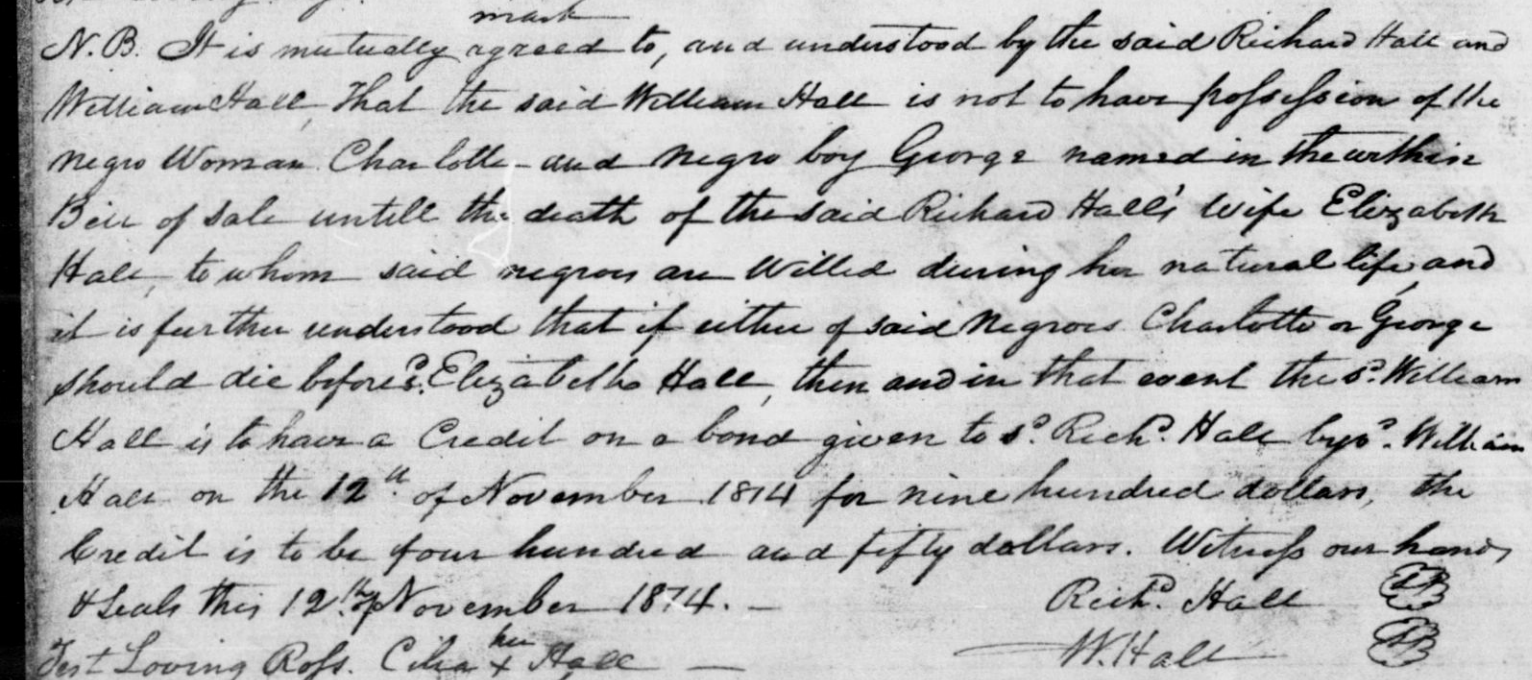 mark
N.B. It is mutually agreed to, and understood by the said Richard Hall and
William Hall, That the said William Hall is not to have possession of the
negro Woman Charlotte and negro boy George named in the within
Bill of Sale untill the death of the said Richard Hall's wife Elizabeth
Hall, to whom said negroes are Willed during her natural life, and
it is further understood that if either of said Negroes Charlotte or George
should die before sd. Elizabeth Hall, then and in that event the sd. William
Hall is to have a Credit on a bond given to sd. Richd. Hall by sd. William
Hall on the 12th. of November 1814 for nine hundred dollars, the
Credit is to be four hundred and fifty dollars. Witness our hands
& Seals this 12th. of November 1814. Richd. Hall
Test Loving Ross. Celia her x Hall W. Hall